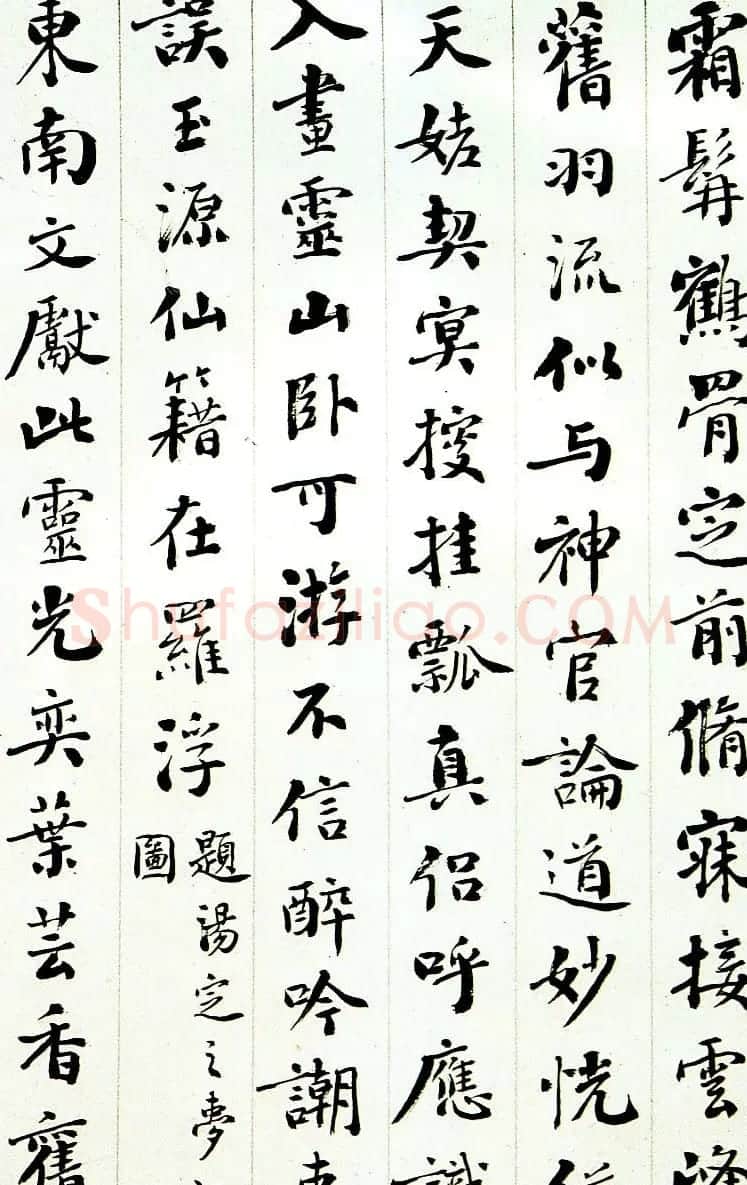 霜髯鶴骨定前脩寐接雲
舊羽流似与神官論道妙恍
天姥契冥搜挂瓢真侣呼應識
入畫靈山卧可游不信醉吟謝
誤玉源仙籍在羅浮
題湯定之夢
圖
東南文獻此靈光奕葉芸香舊
ShufaZiliao.COM